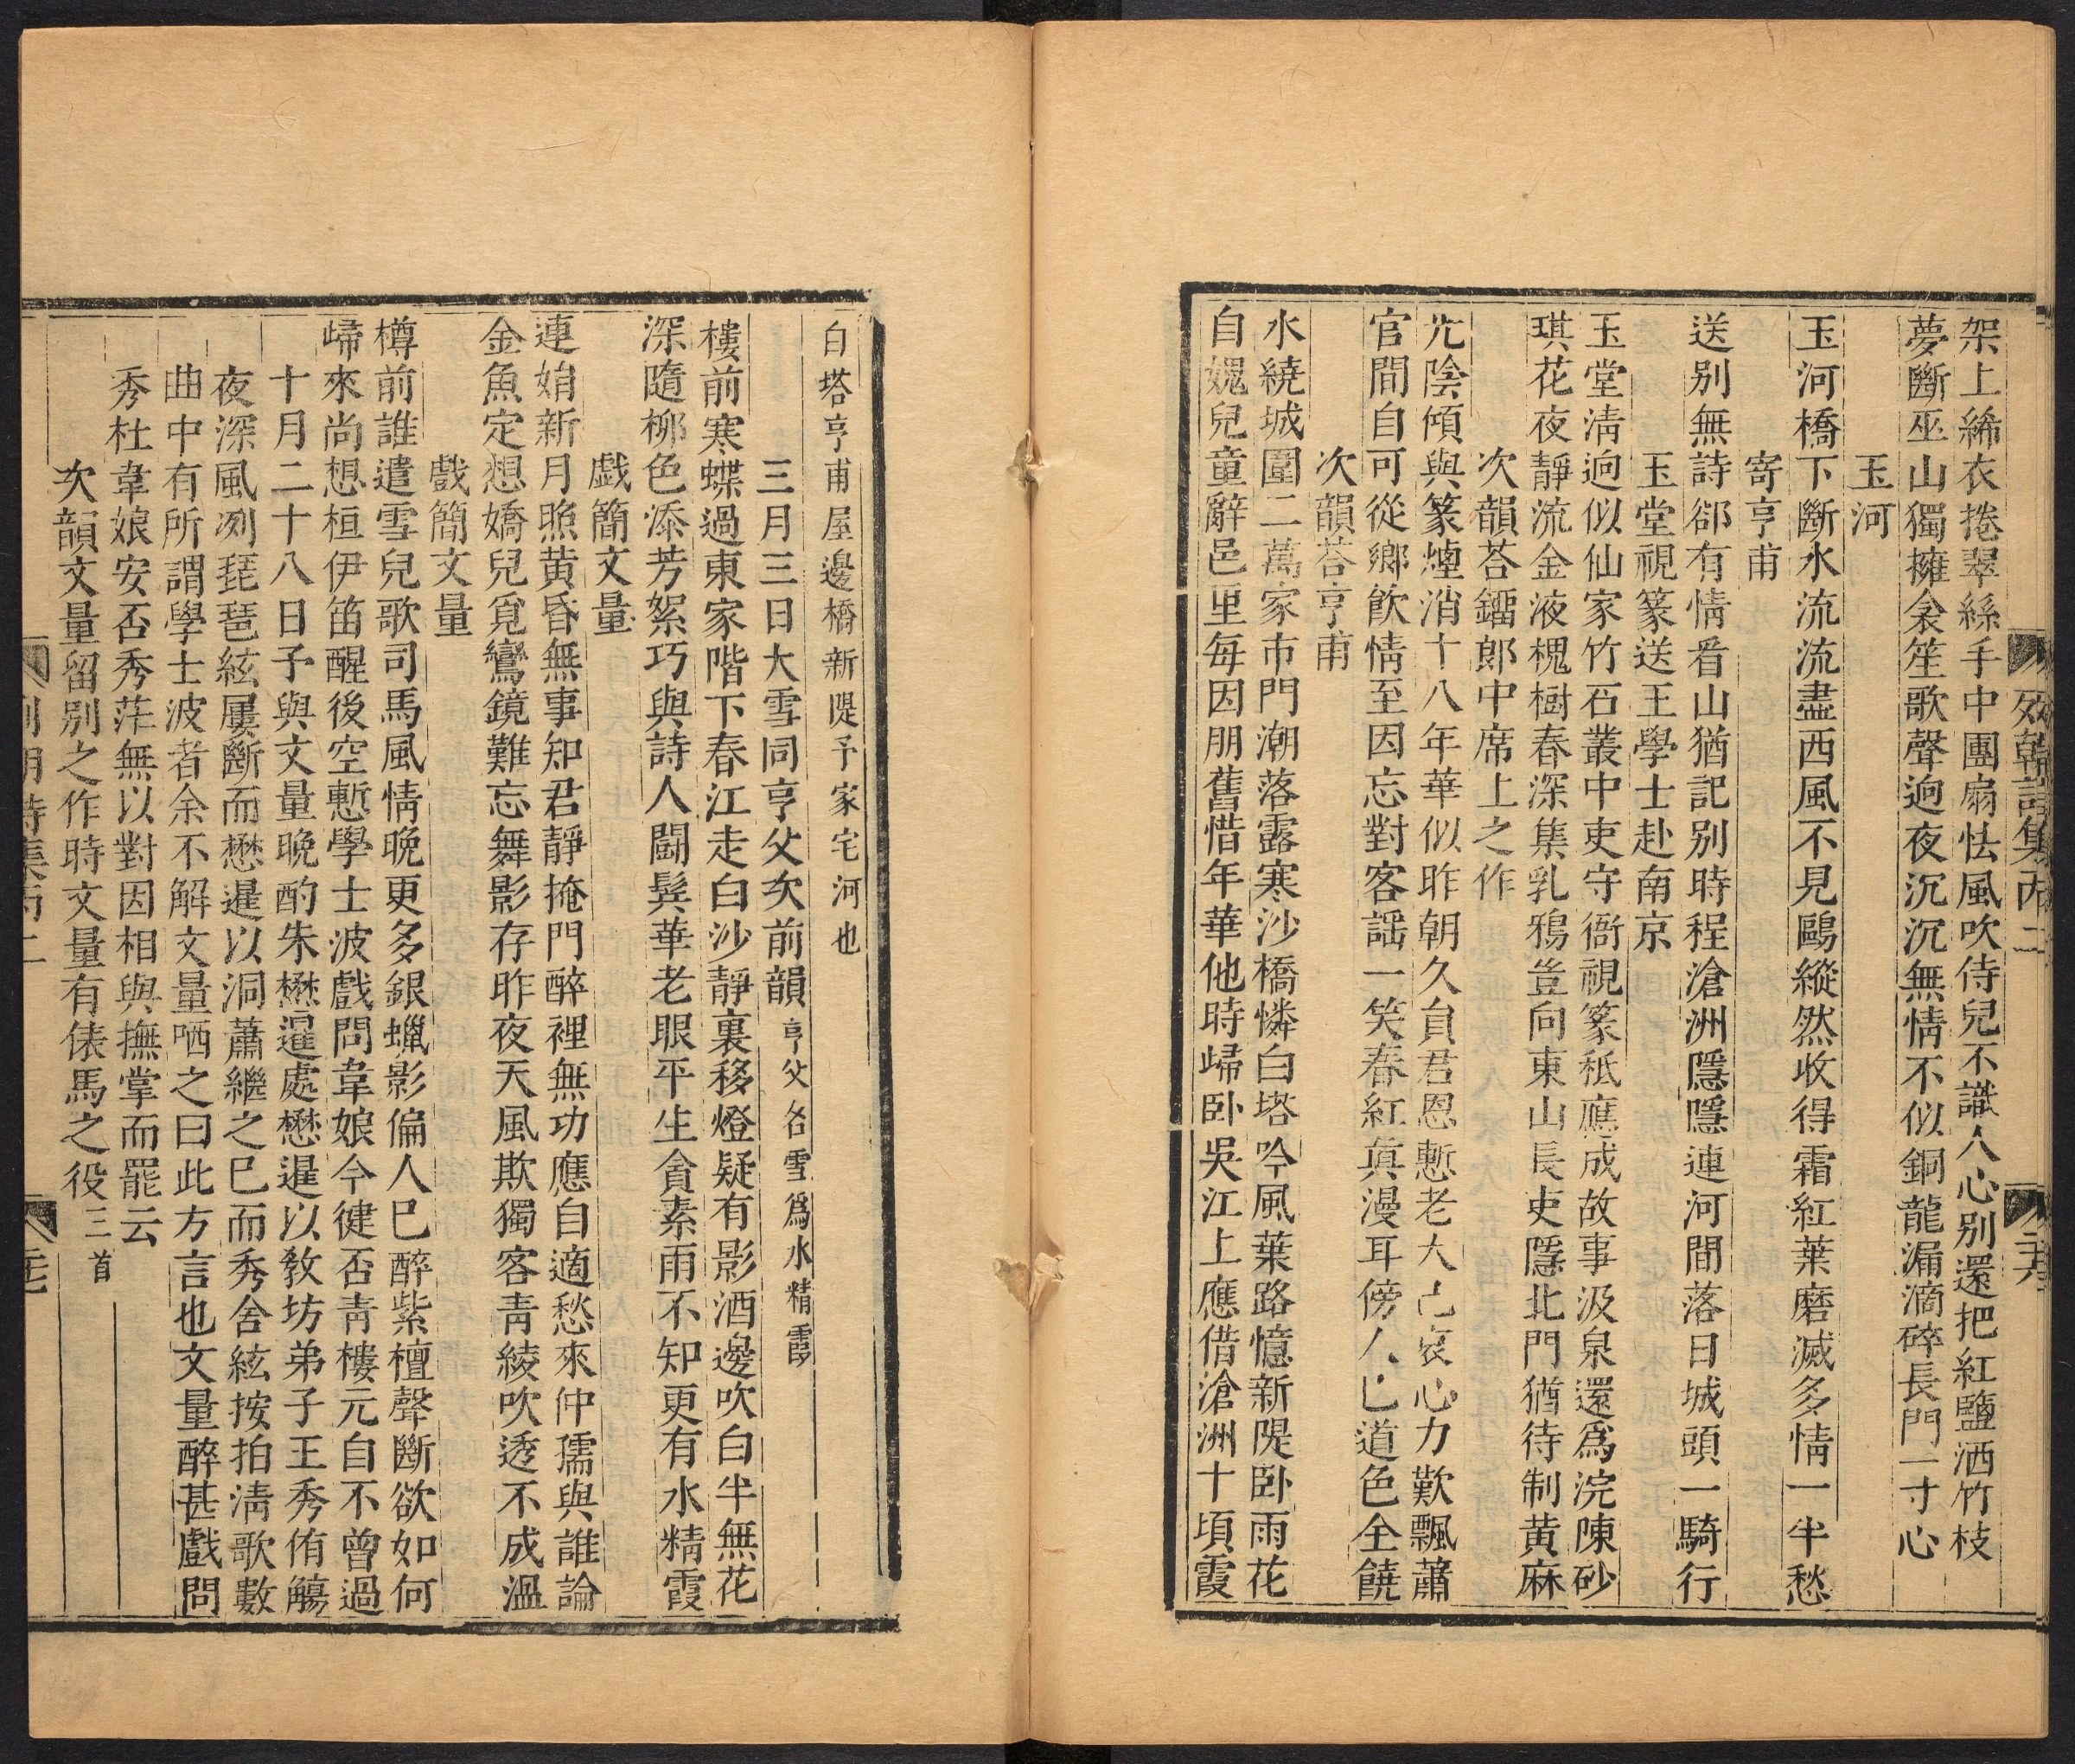 架上絺衣捲翠絲手中團扇怯風吹侍兒不識人心别還把紅鹽洒竹枝
夢斷巫山獨擁衾笙歌聲逈夜沉沉無情不似銅龍漏滴碎長門一寸心
玉河
玉河橋下斷水流流盡西風不見鷗縱然收得霜紅葉磨滅多情一半愁
寄亨甫
送别無詩郤有情看山猶記别時程滄洲隱隱連河間落日城頭一騎行
玉堂視篆送王學士赴南京
玉堂淸逈似仙家竹石叢中吏守衙視篆秪應成故事汲泉還爲浣陳砂
琪花夜靜流金液槐樹春深集乳鴉豈向東山長吏隱北門猶待制黄麻
次韻荅鎦郎中席上之作
光陰傾與篆煙消十八年華似昨朝久負君恩慙老大已衰心力歎飄蕭
官間自可從鄉飮情至因忘對客謡一笑春紅真漫耳傍人已道色全饒
次韻荅亨甫
水繞城圍二萬家市門潮落露寒沙橋憐白塔吟風葉路憶新隄卧雨花
自媿兒童辭邑里每因朋舊惜年華他時歸卧吳江上應借滄洲十頃霞
白塔亨甫屋邊橋新隄予家宅河也
三月三日大雪同亨父次前韻亨父名雪爲水精霞
樓前寒蝶過東家階下春江走白沙靜裏移燈疑有影酒邊吹白半無花
深隨柳色添芳絮巧與詩人鬭鬂華老眼平生貪素雨不知更有水精霞
戯簡文量
連娟新月照黄昏無事知君靜掩門醉裡無功應自適愁來仲孺與誰論
金魚定想嬌兒覓鸞鏡難忘舞影存昨夜天風欺獨客靑綾吹透不成溫
戲簡文量
樽前誰遣雪兒歌司馬風情晚更多銀蠟影偏人已醉紫檀聲斷欲如何
歸來尚想桓伊笛醒後空慙學士波戲問韋娘今徤否靑樓元自不曾過
十月二十八日予與文量晚酌朱懋暹處懋暹以敎坊弟子王秀侑觴
夜深風冽琵琶絃屢斷而懋暹以洞蕭繼之已而秀舍絃按拍淸歌數
曲中有所謂學士波者余不解文量哂之曰此方言也文量醉甚戲問
秀杜韋娘安否秀茫無以對因相與撫掌而罷云
次韻文量留别之作時文量有俵馬之役三首